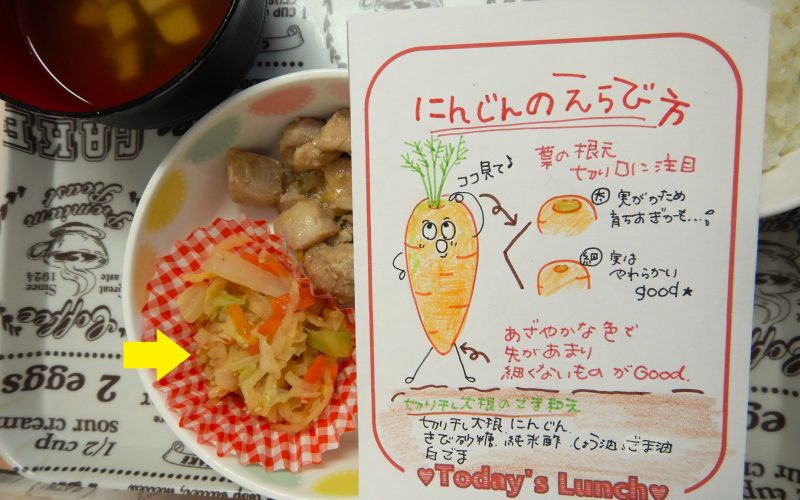 にんじんのえらび方
葉の根元
切り口に注目
ココ見て♪
太 実がかため
育ちすぎかも…。
細 実は
やわらかい
good★
あざやかな色で
先があまり
細くないものがGood.
切り干し大根のごま和え
切り干し大根 にんじん
きび砂糖、純米酢、しょう油、ごま油
白ごま
♥Today's Lunch♥
CAKE
Premium
Roast
Since
1924
Coffee
2 eggs
1/2 cup
sour cream
1 CUP